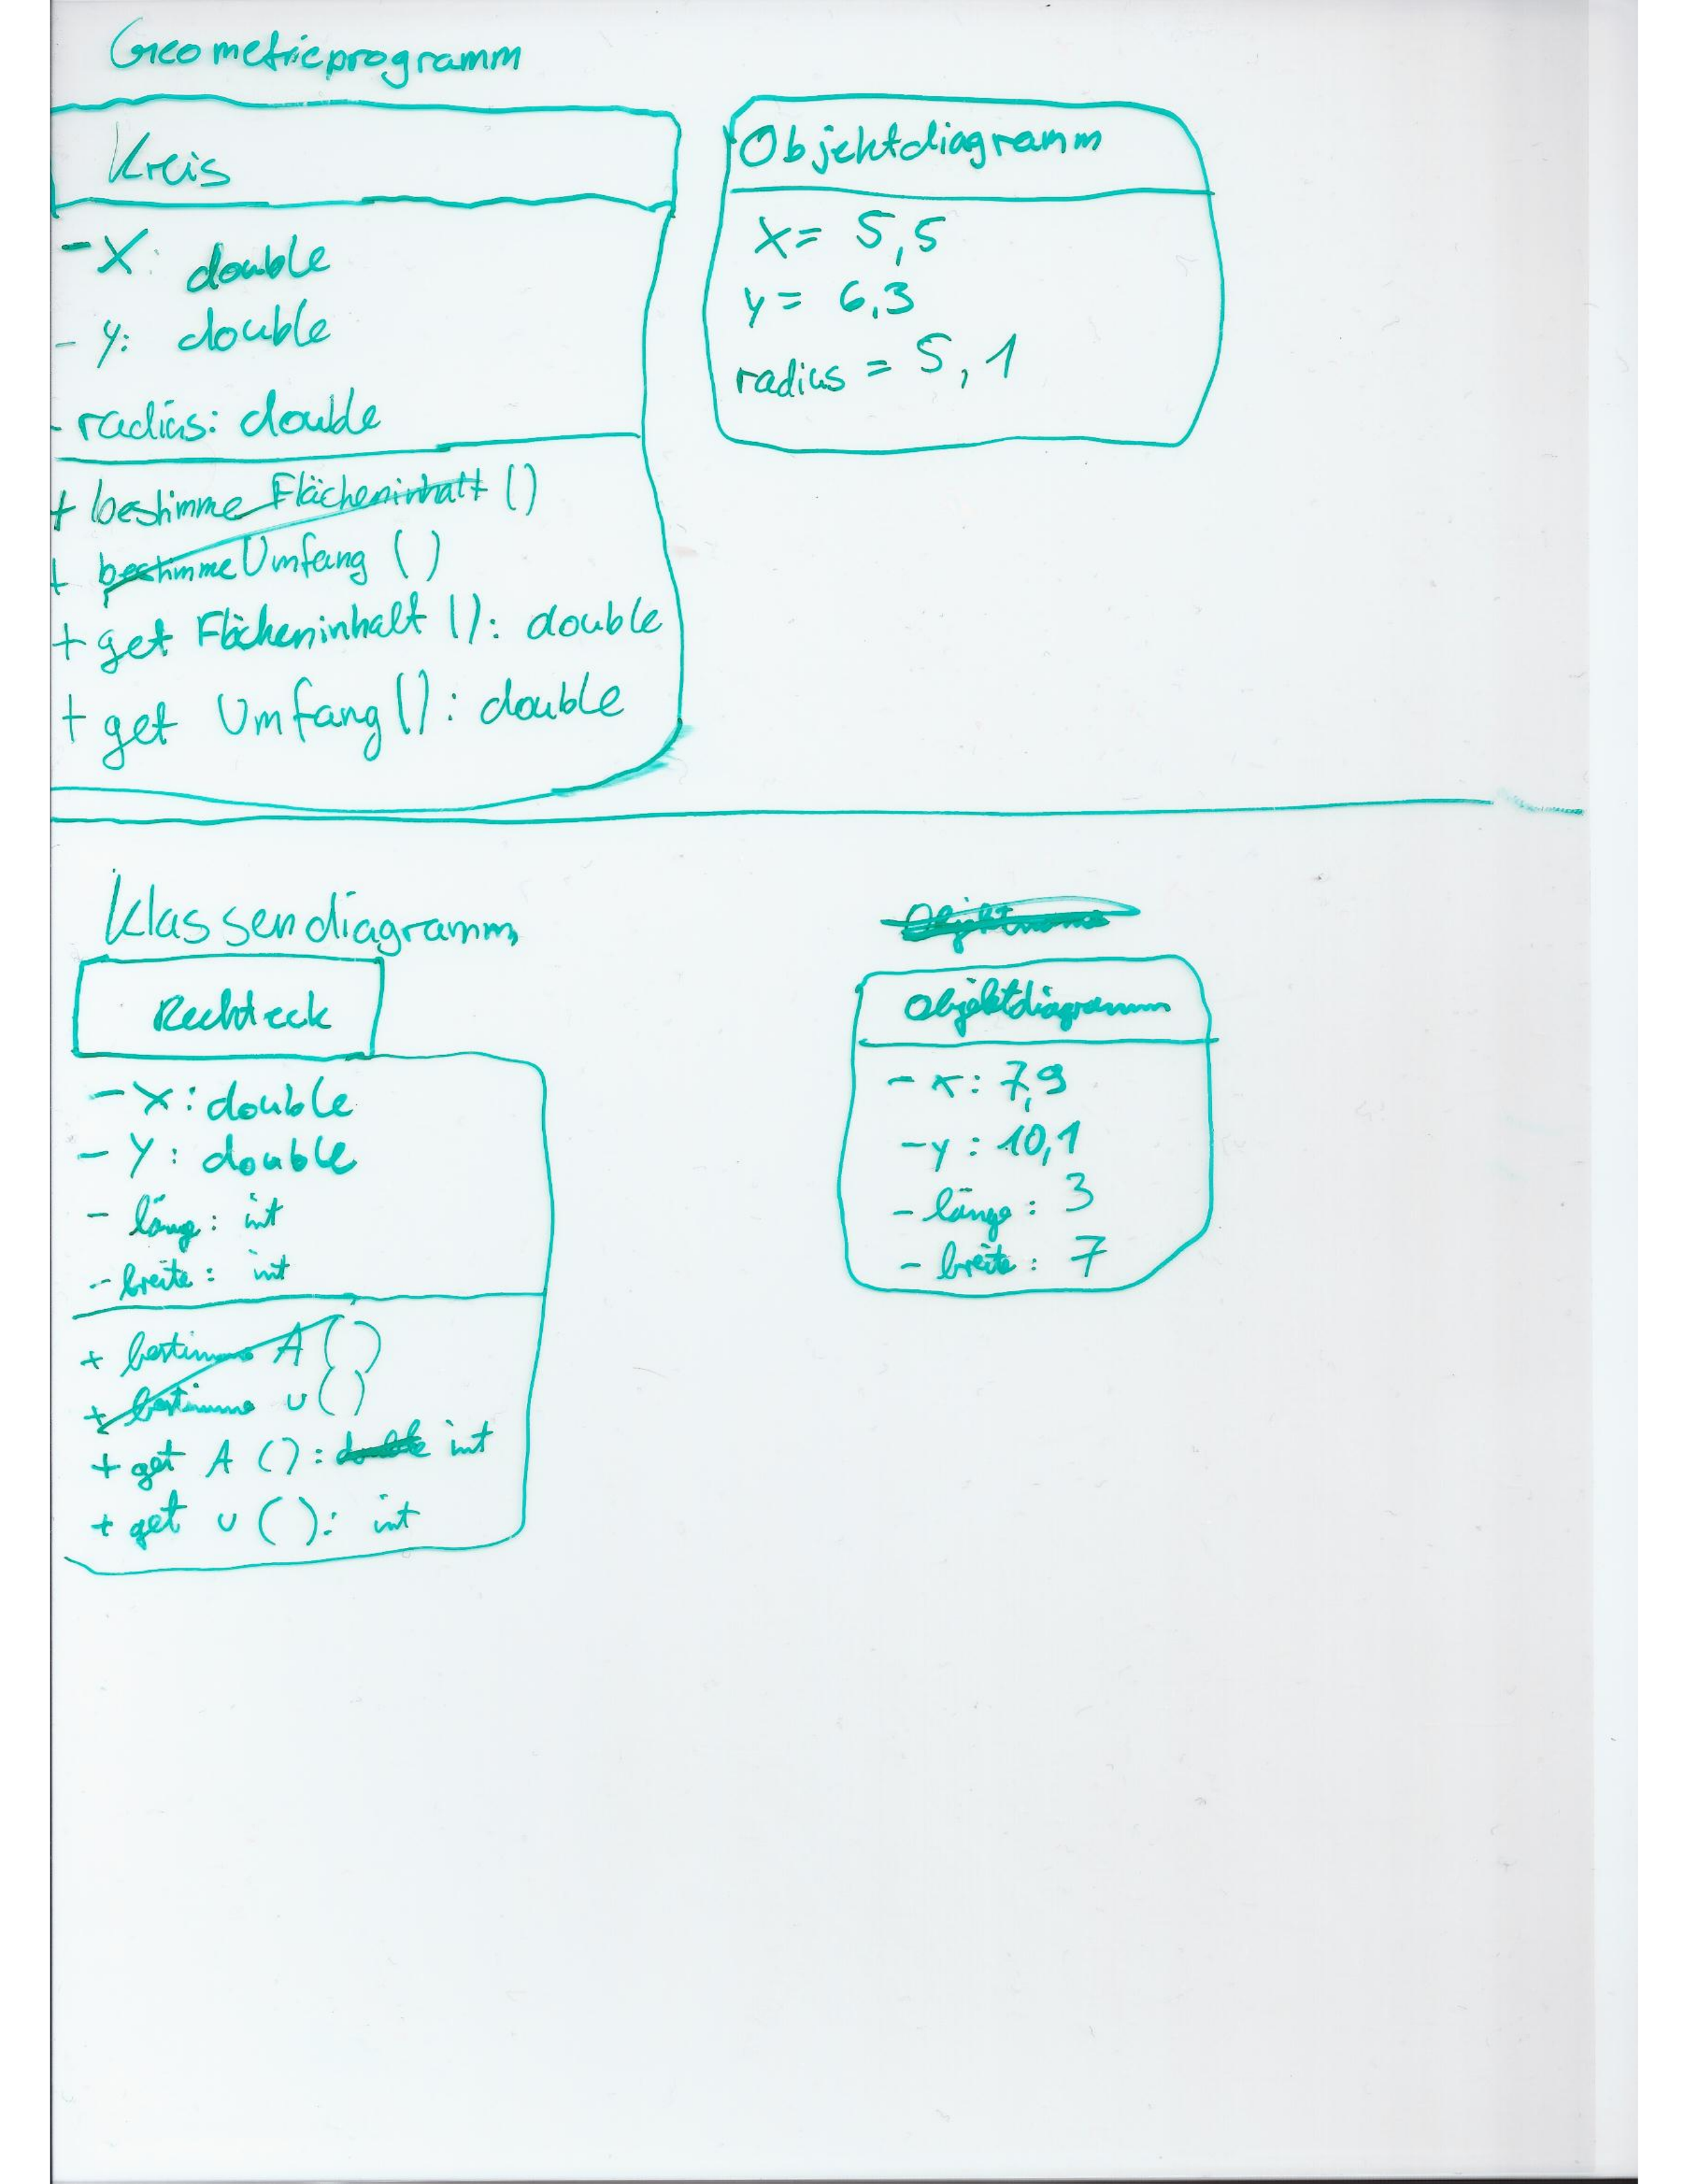 Geometrieprogramm
Kreis
- X: double
- y: double
- radius: double
+ bestimme Flächeninhalt ()
+ bestimme Umfang ()
+ get Flächeninhalt (): double
+ get Umfang (): double
Objektdiagramm
X = 5,5
y = 6,3
radius = 5,1
Klassendiagramm
Rechteck
- X: double
- Y: double
- läng: int
- breite: int
+ bestimme A ()
+ bestimme u ()
+ get A (): double int
+ get u (): int
Objektname
Objektdiagramm
- x: 7,9
- y: 10,1
- länge: 3
- breite: 7